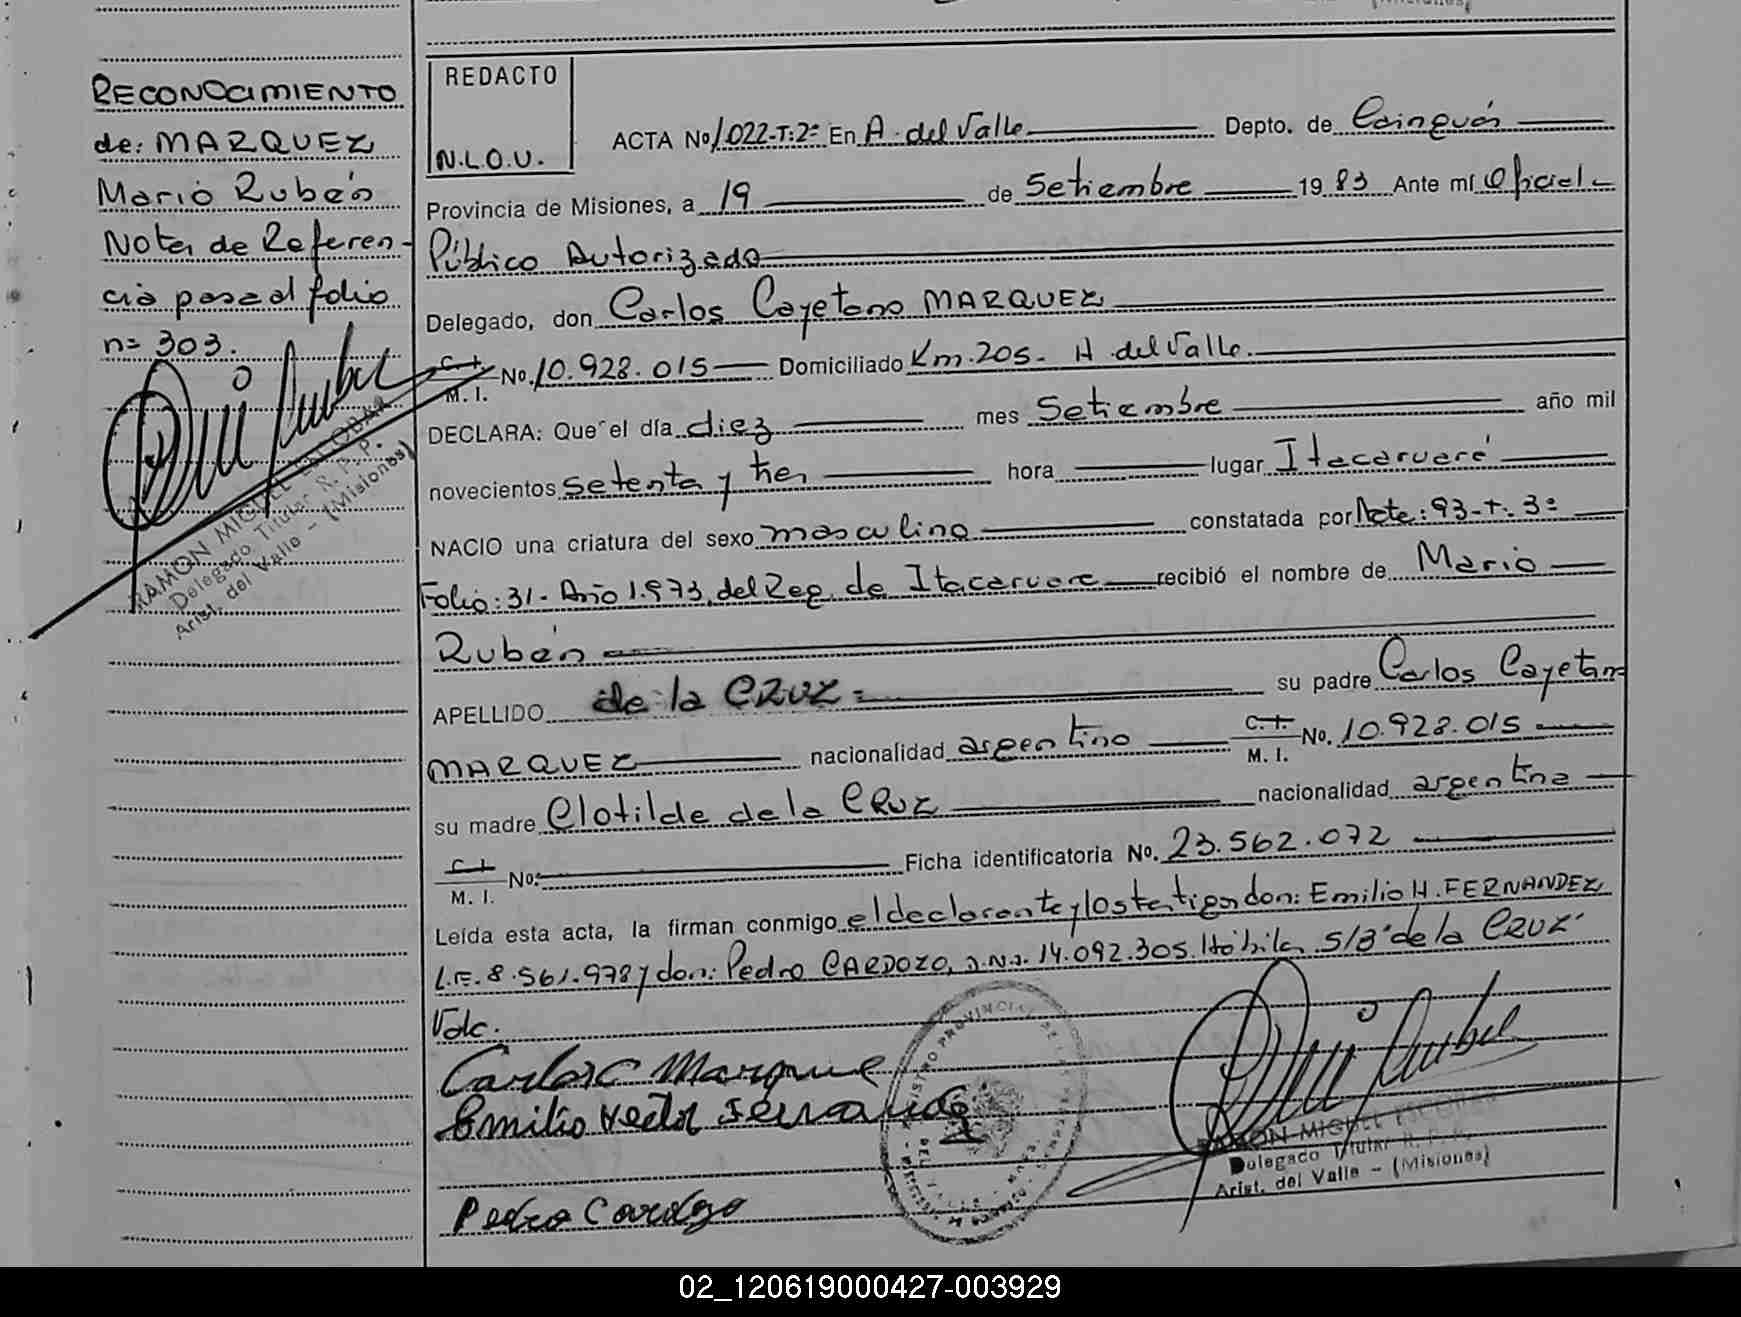 RECONOCIMIENTO
de: MARQUEZ
Mario Rubén
Nota de Referen-
cia pasa al folio
n= 303.
RAMON MIGUEL
Delegado Titular R. P. P.
Arist. del Valle - (Misiones)
REDACTO
N.L.O.U.
ACTA No 1.022-T:2º En A. del Valle Depto. de Cainguás
Provincia de Misiones, a 19 de Setiembre 19 83 Ante mí Oficial
Público Autorizado
Delegado, don Carlos Cayetano MARQUEZ
C. I. M. I. No. 10.928.015 Domiciliado Km. 205- A. del Valle.
DECLARA: Que el día diez mes Setiembre año mil
novecientos setenta y tres hora lugar Itacaruaré
NACIO una criatura del sexo masculino constatada por Acta: 93-T. 3º
Folio: 31- Año 1.973, del Reg. de Itacaruare recibió el nombre de Mario
Rubén
APELLIDO de la CRUZ= su padre Carlos Cayetano
MARQUEZ nacionalidad argentino C. I. M. I. No. 10.928.015
su madre Clotilde de la CRUZ nacionalidad argentina
C. I. M. I. No. Ficha identificatoria No. 23.562.072
Leída esta acta, la firman conmigo el declarante y los testigos don: Emilio H. FERNANDEZ
L.E. 8.561.978 y don: Pedro CARDOZO, D.N.I. 14.092.305. Hábiles S/B de la CRUZ
Vale.
Carlos C Marque
Emilio Hector
Pedro Cardozo
RAMON MIGUEL ESCOBAR
Delegado Titular R. P. P.
Arist. del Valle - (Misiones)
02_120619000427-003929